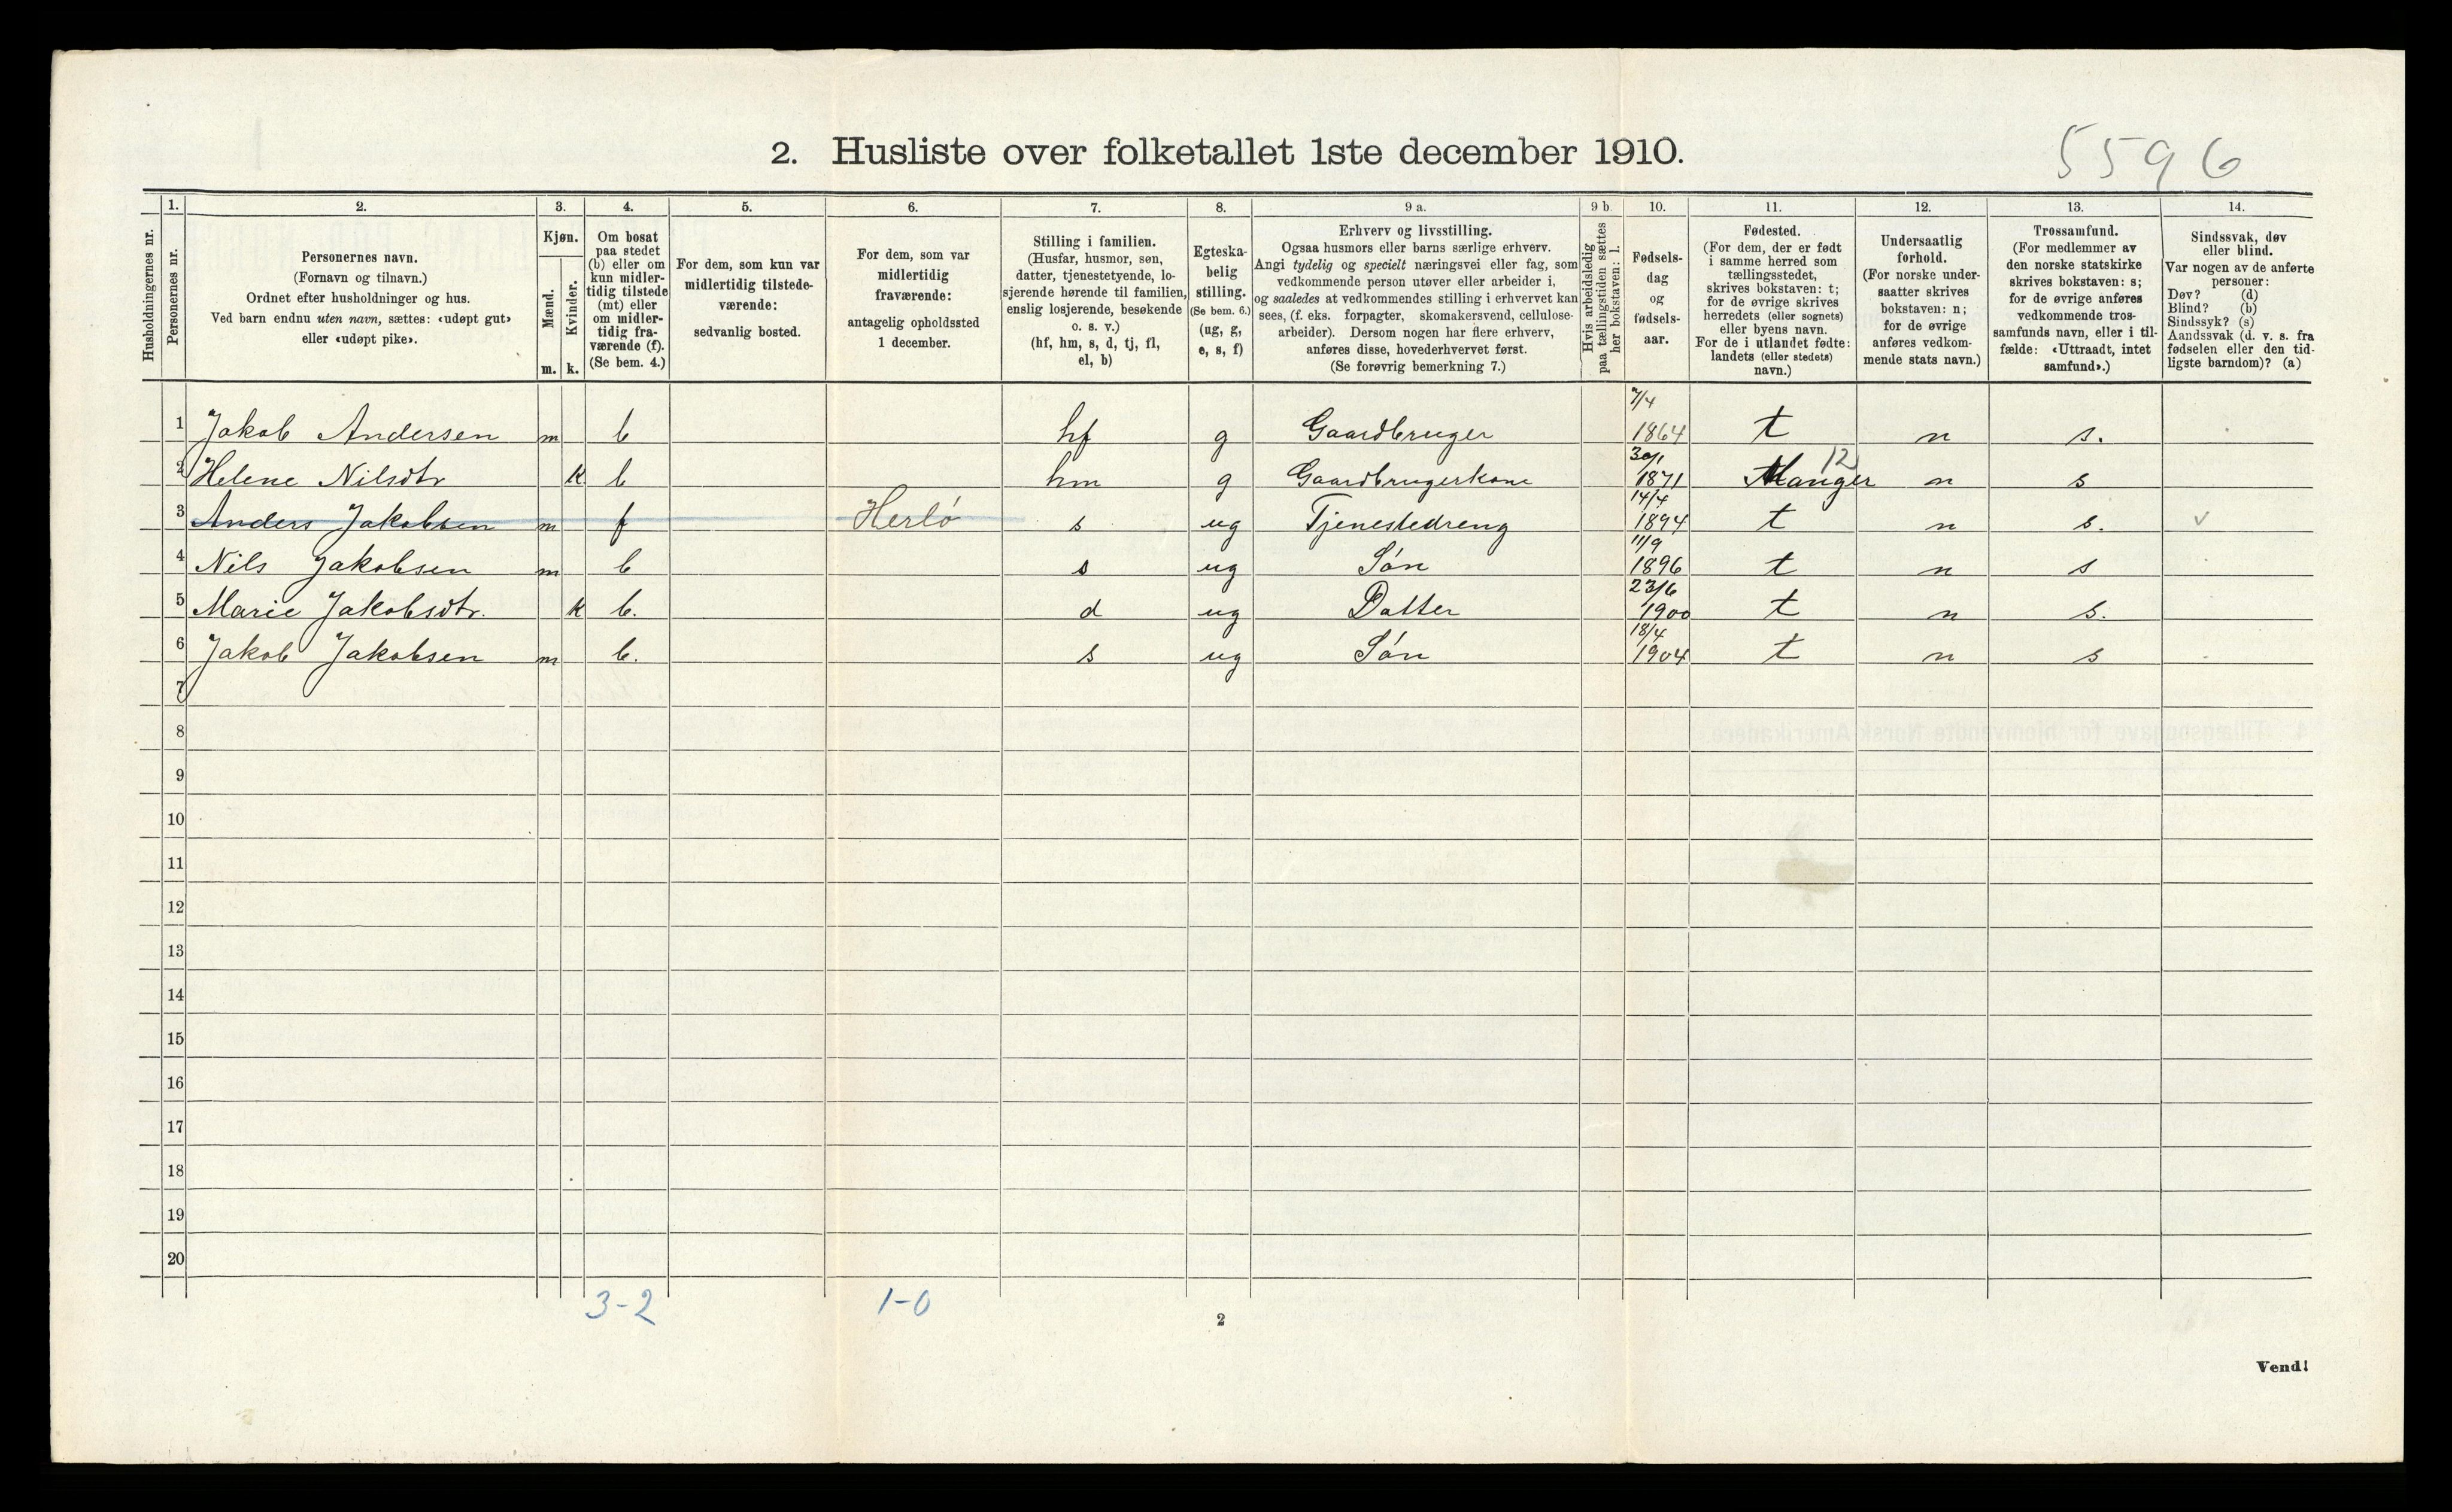 2. Husliste over folketallet 1ste december 1910.
5596
Husholdningernes nr.
1.
Personernes nr.
2.
Personernes navn.
(Fornavn og tilnavn.)
Ordnet efter husholdninger og hus.
Ved barn endnu uten navn, sættes: «udøpt gut»
eller «udøpt pike».
3.
Kjøn.
Mænd.
Kvinder.
m. k.
4.
Om bosat
paa stedet
(b) eller om
kun midler-
tidig tilstede
(mt) eller
om midler-
tidig fra-
værende (f).
(Se bem. 4.)
5.
For dem, som kun var
midlertidig tilstede-
værende:
sedvanlig bosted.
6.
For dem, som var
midlertidig
fraværende:
antagelig opholdssted
1 december.
7.
Stilling i familien.
(Husfar, husmor, søn,
datter, tjenestetyende, lo-
sjerende hørende til familien,
enslig losjerende, besøkende
o. s. v.)
(hf, hm, s, d, tj, fl,
el, b)
8.
Egteska-
belig
stilling.
(Se bem. 6.)
(ug, g,
e, s, f)
9 a.
Erhverv og livsstilling.
Ogsaa husmors eller barns særlige erhverv.
Angi tydelig og specielt næringsvei eller fag, som
vedkommende person utøver eller arbeider i,
og saaledes at vedkommendes stilling i erhvervet kan
sees, (f. eks. forpagter, skomakersvend, cellulose-
arbeider). Dersom nogen har flere erhverv,
anføres disse, hovederhvervet først.
(Se forøvrig bemerkning 7.)
9 b.
Hvis arbeidsledig
paa tællingstiden sættes
her bokstaven: l.
10.
Fødsels-
dag
og
fødsels-
aar.
11.
Fødested.
(For dem, der er født
i samme herred som
tællingsstedet,
skrives bokstaven: t;
for de øvrige skrives
herredets (eller sognets)
eller byens navn.
For de i utlandet fødte:
landets (eller stedets)
navn.)
12.
Undersaatlig
forhold.
(For norske under-
saatter skrives
bokstaven: n;
for de øvrige
anføres vedkom-
mende stats navn.)
13.
Trossamfund.
(For medlemmer av
den norske statskirke
skrives bokstaven: s;
for de øvrige anføres
vedkommende tros-
samfunds navn, eller i til-
fælde: «Uttraadt, intet
samfund».)
14.
Sindssvak, døv
eller blind.
Var nogen av de anførte
personer:
Døv? (d)
Blind? (b)
Sindssyk? (s)
Aandssvak (d. v. s. fra
fødselen eller den tid-
ligste barndom)? (a)
1 Jakob Andersen m b hf g Gaardbruger 7/4 1864 t n s.
2 Helene Nilsdtr k b hm g Gaardbrugerkone 30/1 1871 Manger 12 n s
3 Anders Jakobsen m f Herlö s ug Tjenestedreng 14/4 1894 t n s. v
4 Nils Jakobsen m b s ug Sön 11/9 1896 t n s
5 Marie Jakobsdtr. k b. d ug Datter 23/6 1900 t n s.
6 Jakob Jakobsen m b. s ug Sön 18/4 1904 t n s
7
8
9
10
11
12
13
14
15
16
17
18
19
20
3-2 1-0
2
Vend!